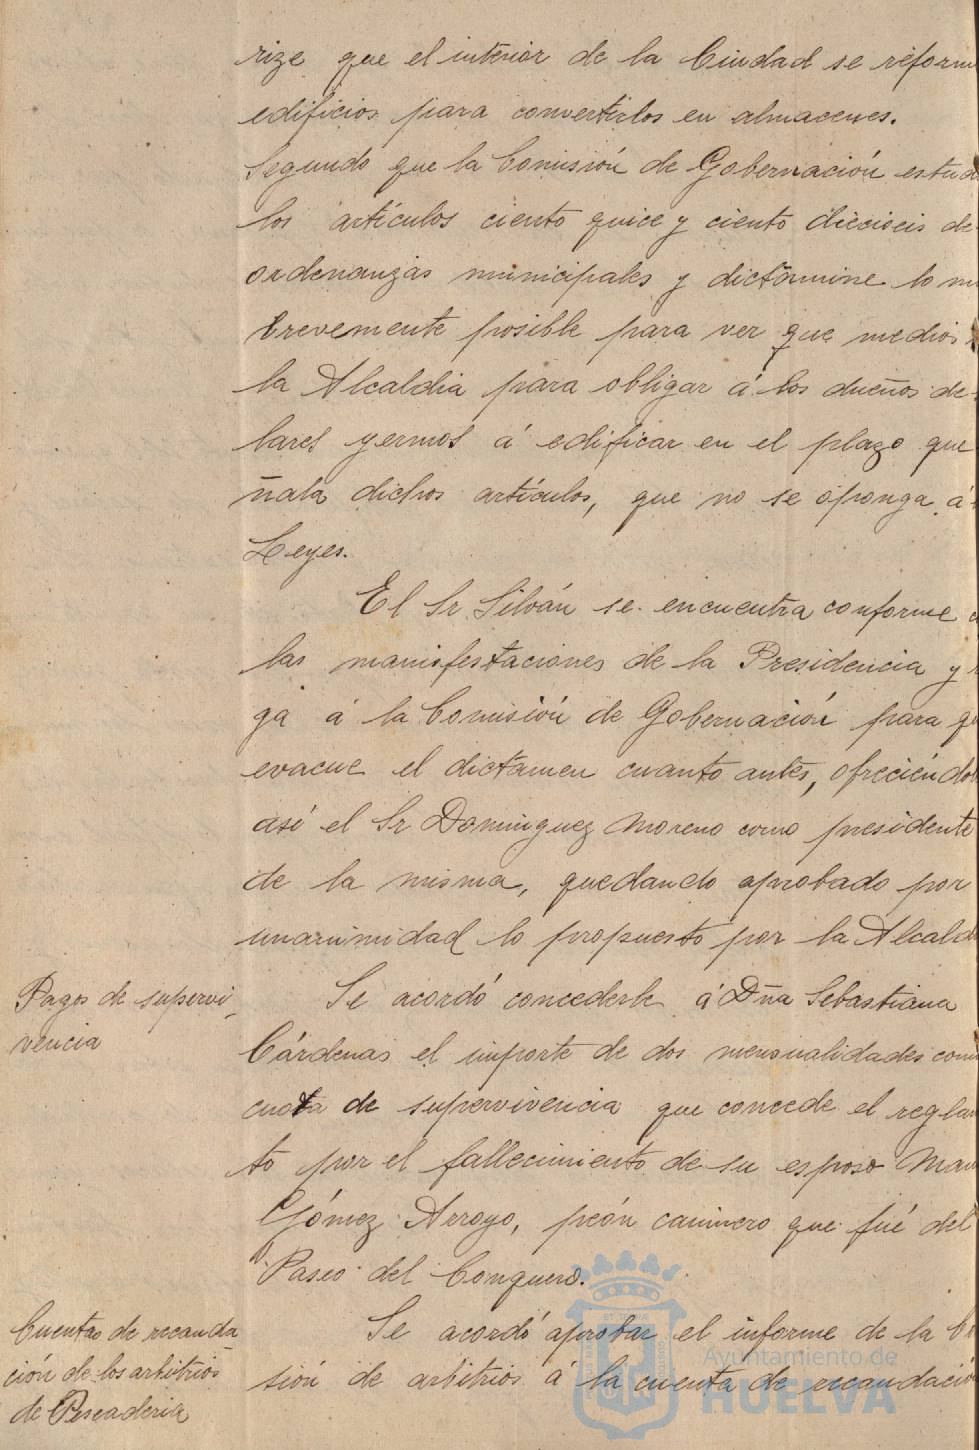 rize que el interior de la Ciudad se reform
edificios para convertirlos en almacenes.
Segundo que la Comisión de Gobernación estud
los artículos ciento quice y ciento dieciseis de
ordenanzas municipales y dictamine lo m
brevemente posible para ver que medios
la Alcaldia para obligar á los dueños de
lares yermos á edificar en el plazo que
ñala dichos artículos, que no se oponga á
Leyes.
El Sr Silván se encuentra conforme c
las manisfestaciones de la Presidencia y r
ga á la Comisión de Gobernación para q
evacue el dictamen cuanto antes, ofreciéndo
así el Sr Dominguez Moreno como presidente
de la misma, quedando aprobado por
unanimidad lo propuesto por la Alcald
Pagos de supervi
vencia
Se acordó concederle á Dña Sebastiana
Cárdenas el importe de dos mensualidades com
cuota de supervivencia que concede el reglam
to por el fallecimiento de su esposo Man
Gómez Arroyo, peón caminero que fué del
Paseo del Conquero.
Cuentas de recauda
ción de los arbitrios
de Pescaderia
Se acordó aprobar el informe de la Co
sión de arbitrios á la cuenta de recaudació
Ayuntamiento de
HUELVA